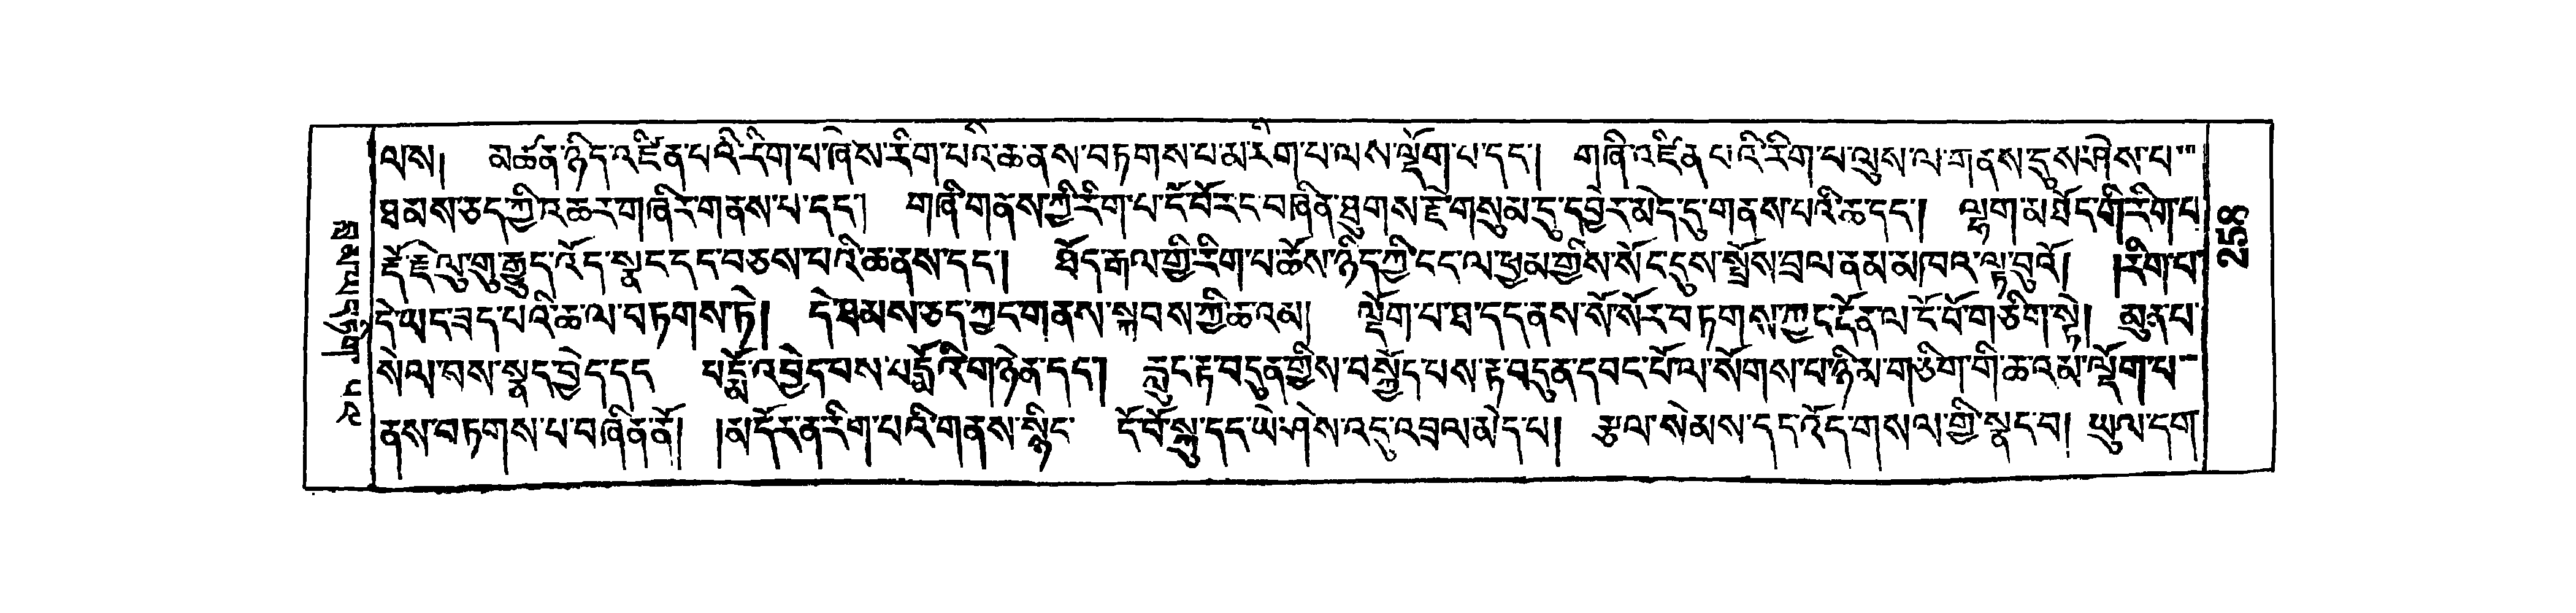 ལས། མཚན་ཉིད་འཛིན་པའི་རིག་པ་ཞེས་རིག་པའི་ཆ་ནས་བཏགས་པ་མ་རིག་པ་ལས་ལྡོག་པ་དང་། གཞི་འཛིན་པའི་རིག་པ་ལུས་ལ་གནས་དུས་ཤེས་པ་
ཐམས་ཅད་ཀྱི་འཆར་གཞིར་གནས་པ་དང་། གཞི་གནས་ཀྱི་རིག་པ་ངོ་བོ་རང་བཞིན་ཐུགས་རྗེ་གསུམ་དུ་དབྱེར་མེད་དུ་གནས་པའི་ཆ་དང་། ལྷག་མཐོང་གི་རིག་པ་
རྡོ་རྗེ་ལུ་གུ་རྒྱུད་འོད་སྣང་དང་བཅས་པའི་ཆ་ནས་དང་། ཐོད་རྒལ་གྱི་རིག་པ་ཆོས་ཉིད་ཀྱི་ངང་ལ་ཕྱམ་གྱིས་སོང་དུས་སྤྲོས་བྲལ་ནམ་མཁའ་ལྟ་བུའོ། །རིག་པ་
དེ་ཡང་ཟང་པའི་ཆ་ལ་བཏགས་ཏེ། དེ་ཐམས་ཅད་ཀྱང་གནས་སྐབས་ཀྱི་ཆ་འམ། ལྡོག་པ་ཐ་དད་ནས་སོ་སོར་བཏགས་ཀྱང་དོན་ལ་ངོ་བོ་གཅིག་སྟེ། མུན་པ་
སེལ་བས་སྣང་བྱེད་དང པདྨོ་འབྱེད་བས་པདྨོའི་གཉེན་དང་། རླུང་རྟ་བདུན་གྱིས་བསྐྱོད་པས་རྟ་བདུན་དབང་པོ་ལ་སོགས་པ་ཉི་མ་གཅིག་གི་ཆ་འམ་ལྡོག་པ་
ནས་བཏགས་པ་བཞིན་ནོ། །མདོར་ན་རིག་པའི་གནས་སྙིང་ ངོ་བོ་སྐུ་དང་ཡེ་ཤེས་འདུ་འབྲལ་མེད་པ། རྩལ་སེམས་དང་འོད་གསལ་གྱི་སྣང་བ། ཡུལ་དག